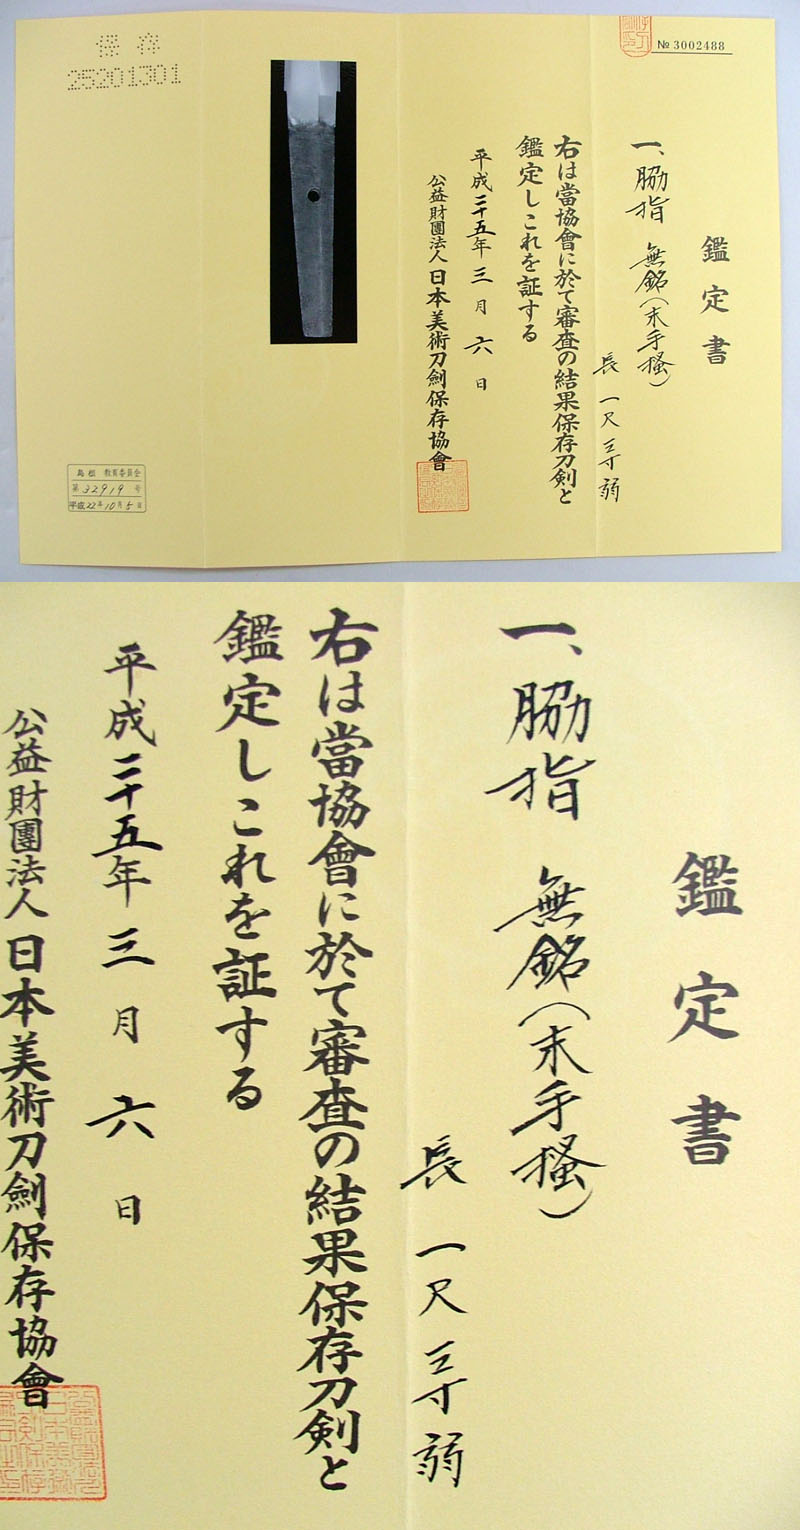 № 3002488
鑑定書
一、脇指 無銘(末手掻)
長 一尺三寸弱
右は當協會に於て審査の結果保存刀剣と
鑑定しこれを証する
平成二十五年三月六日
公益財團法人日本美術刀劍保存協會
保存
25201301
島根 教育委員会
第32919号
平成22年10月5日
鑑定書
一、脇指 無銘(末手掻)
長 一尺三寸弱
右は當協會に於て審査の結果保存刀剣と
鑑定しこれを証する
平成二十五年三月六日
公益財團法人日本美術刀劍保存協會